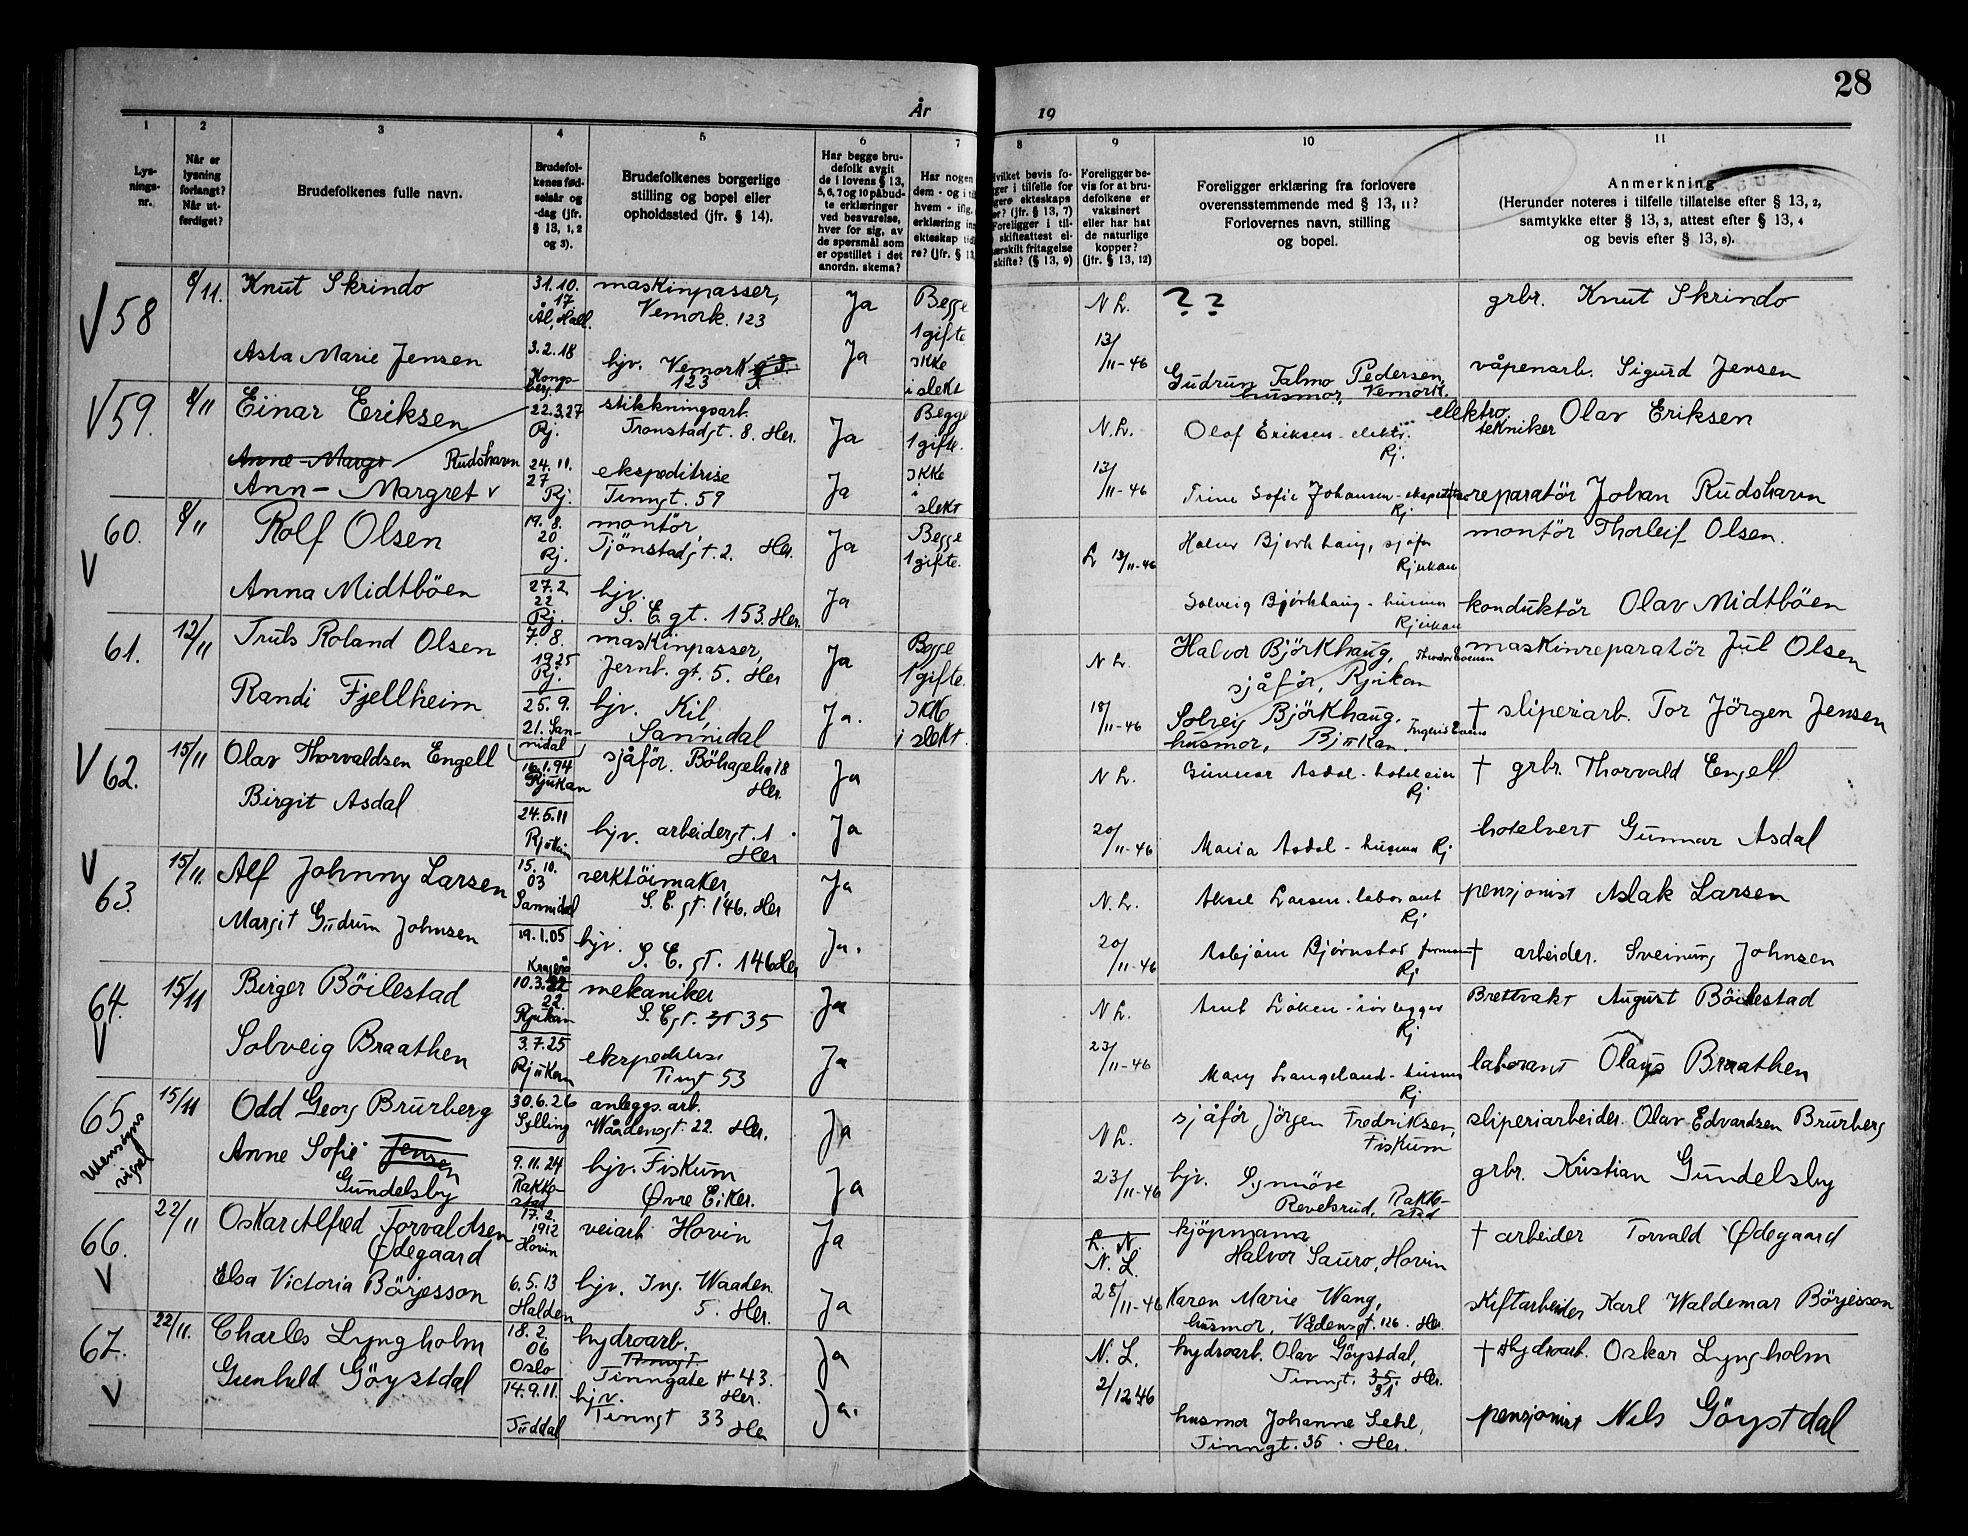 28
År 19
1 2 3 4 5 6 7 8 9 10 11
Lys-
nings-
nr.
Når er
lysning
forlangt?
Når ut-
ferdiget?
Brudefolkenes fulle navn.
Brudefol-
kenes fød-
selsår og
-dag (jfr.
§ 13, 1, 2
og 3).
Brudefolkenes borgerlige
stilling og bopel eller
opholdssted (jfr. § 14).
Har begge bru-
defolk avgit
de i lovens § 13,
5, 6, 7 og 10 påbud-
te erklæringer
ved besvarelse,
hver for sig, av
de spørsmål som
er opstillet i det
anordn. skema?
Har nogen
dem - og i
hvem - ifig.
erklæring
ekteskap
re? (jfr. §
Foreligger be-
vis for at bru-
defolkene er
vaksinert
eller har hat
de naturlige
kopper?
(jfr. § 13, 12)
Foreligger erklæring fra forlovere
overensstemmende med § 13, 11?
Forlovernes navn, stilling
og bopel.
Anmerkning
(Herunder noteres i tilfelle tillatelse efter § 13, 2,
samtykke efter § 13, 3, attest efter § 13, 4
og bevis efter § 13, 8).
V 58 8/11. Knut Skrindo
31.10.
17
Ål, Hall.
maskinpasser,
Vemork. 123
Ja
Begge
1 gifte.
N L.
? ?
grbr. Knut Skrindo
Asta Marie Jensen
3.2.18
Kongs-
berg
hjv. Vemork
123
Ja
Ikke
i slekt
13/11-46
Gudrun Talmo Pedersen,
husmor, Vemork.
våpenarb. Sigurd Jensen
V 59. 8/11 Einar Eriksen
22.3.27
Rj.
stikkningsarb.
Tronstadgt. 8. Her.
Ja
Begge
1 gifte.
N.L.
Olof Eriksen - elektr.
Rj.
elektro
tekniker Olav Eriksen
Anne-Margr Rudshavn
Ann-Margret v
24.11.
27
Rj.
ekspeditrise
Tinngt. 59
Ja
Ikke
i
slekt
13/11-46
Trine Sofie Johansen - ekspeditrise
Rj
reparatör Johan Rudshavn
60. V 8/11 Rolf Olsen
19.8.
20
Rj.
montör,
Tjönstadgt. 2. Her.
Ja
Begge
1 gifte.
L 13/11-46
Halvor Bjørkhaug, sjåfør
Rjukan
montör Thorleif Olsen.
Anna Midtböen
27.2.
22
Rj.
hjv.
S. E. gt. 153. Her.
Ja
Solveig Bjørkhaug - husmor
Rjukan
konduktör Olav Midtböen
61. 12/11 Truls Roland Olsen
7.8.
1925
Rj.
maskinpasser,
Jernb. gt. 5. Her
Ja
Begge
1 gifte.
N L.
Halvor Björkhaug,
sjåför, Rjukan
maskinreparatör Jul Olsen
Randi Fjellheim
25.9.
21. San-
nidal
hjv. Kil,
Sannidal
Ja.
Ikke
i slekt.
18/11-46
Solveig Björkhaug.
husmor, Rjukan.
† sliperiarb. Tor Jörgen Jensen
V 62. 15/11 Olav Thorvaldsen Engell
16.1.94
Rjukan
sjåför. Böhagelia 18
Her.
Ja
N L.
Gunnar Asdal - hoteleier
Rj
† grbr. Thorvald Engell
Birgit Asdal
24.5.11
Rjukan
hjv. arbeidergt. 1.
Her
Ja
20/11-46
Maria Asdal - husmor Rj
hotelvert Gunnar Asdal
V 63. 15/11. Alf Johnny Larsen
15.10.
03
Sannidal
verktöimaker,
S. E. gt. 146. Her
Ja
N.L.
Aksel Larsen - laborant
Rj
pensjonist Aslak Larsen
Margit Gudrun Johnsen
19.1.05
Kragerö
hjv.
S. E. gt. 146 Her
Ja.
20/11-46
Asbjørn Bjørnstad formann
Rj
† arbeider. Sveinung Johnsen
64. V 15/11 Birger Böilestad
10.3.
22.
Rjukan
mekaniker
S. E gt. gt 35
Ja
N L.
Arnt Löken - rørlegger
Rj
Brettvakt August Böilestad
Solveig Braathen
3.7.25
Rjukan
ekspeditrise
Tingt 53
Ja
23/11-46
Mary Langeland - husmor
Rj
laborant Olaus Braathen
65 15/11 Odd Georg Brurberg
30.6.26
Sylling
anleggs. arb.
Wåadengt. 22. Her.
Ja
N L.
sjåför, Jörgen Fredriksen,
Fiskum
sliperiarbeider. Olav Edvardsen Brurberg
Utensogns
vigsel
Anne Sofie Jensen
Gundelsby
9.11.24
Rakke-
stad
hjv. Fiskum
Øvre Eiker.
Ja
23/11-46
hjv. Synnöve
Revelsrud, Rakke-
stad
grbr. Kristian Gundelsby
66. V 22/11 Oskar Alfred Torvaldsen
Ødegaard
17.2.
1912
Hovin
veiarb Hovin
Ja
L. N
N. L.
kjöpmann
Halvor Sauro, Hovin
† arbeider Torvald Ødegaard
Elsa Victoria Börjesson
6.5.13
Halden
hjv. Ing. Waaden
5. Her.
Ja
28/11-46
Karen Marie Wang,
husmor, Vådensgt. 126. Her.
skiftarbeider Karl Waldemar Börjesson
67. V 22/11. Charles Lyngholm
18.2.
06
Oslo
hydroarb.
Tinngt.
Tinngate # 43.
Her.
Ja
N. L.
hydroarb. Olav Göystdal,
Tinngt. 35. Her.
31
† Hydroarb. Oskar Lyngholm
Gunhild Göystdal
14.9.11.
Tuddal
hjv.
Tinngt 33 Her
Ja.
2/12 46
husmor Johanne Sehl,
Tinngt. 35. Her.
pensjonist Nils Göystdal